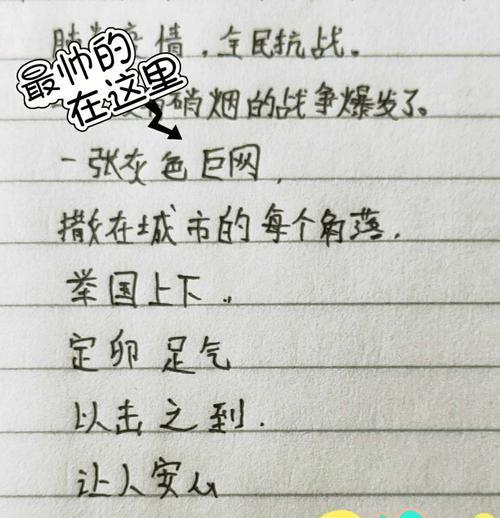 情，全民抗战。
最帅的
在这里
硝烟的战争爆发了。
一张灰色巨网，
撒在城市的每个角落，
举国上下，
定卯足气
以击之到.
让人安心